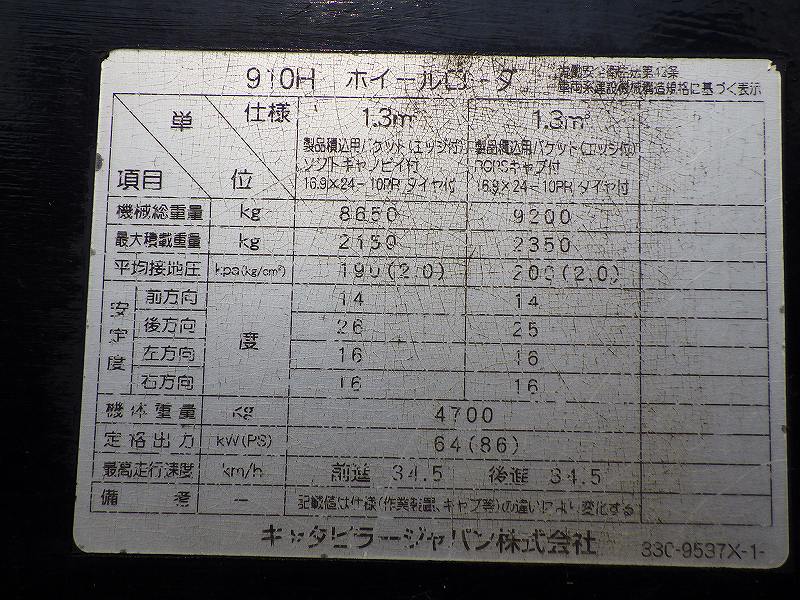 910H ホイールローダ
労働安全衛生法第42条
車両系建設機械構造規格に基づく表示
単 仕様
項目 位
1.3m³
製品積込用バケット(エッジ付)
ソフトキャノピイ付
16.9×24-10PR タイヤ付
1.3m³
製品積込用バケット(エッジ付)
ROPSキャブ付
16.9×24-10PR タイヤ付
機械総重量 kg 8650 9200
最大積載重量 kg 2150 2350
平均接地圧 kpa(kg/cm²) 190(2.0) 200(2.0)
安定度 度
前方向 14 14
後方向 26 25
左方向 16 16
右方向 16 16
機体重量 kg 4700
定格出力 kW(PS) 64(86)
最高走行速度 km/h 前進 34.5 後進 34.5
備考 — 記載値は仕様(作業装置、キャブ等)の違いにより変化する
キャタピラージャパン株式会社
330-9537X-1-